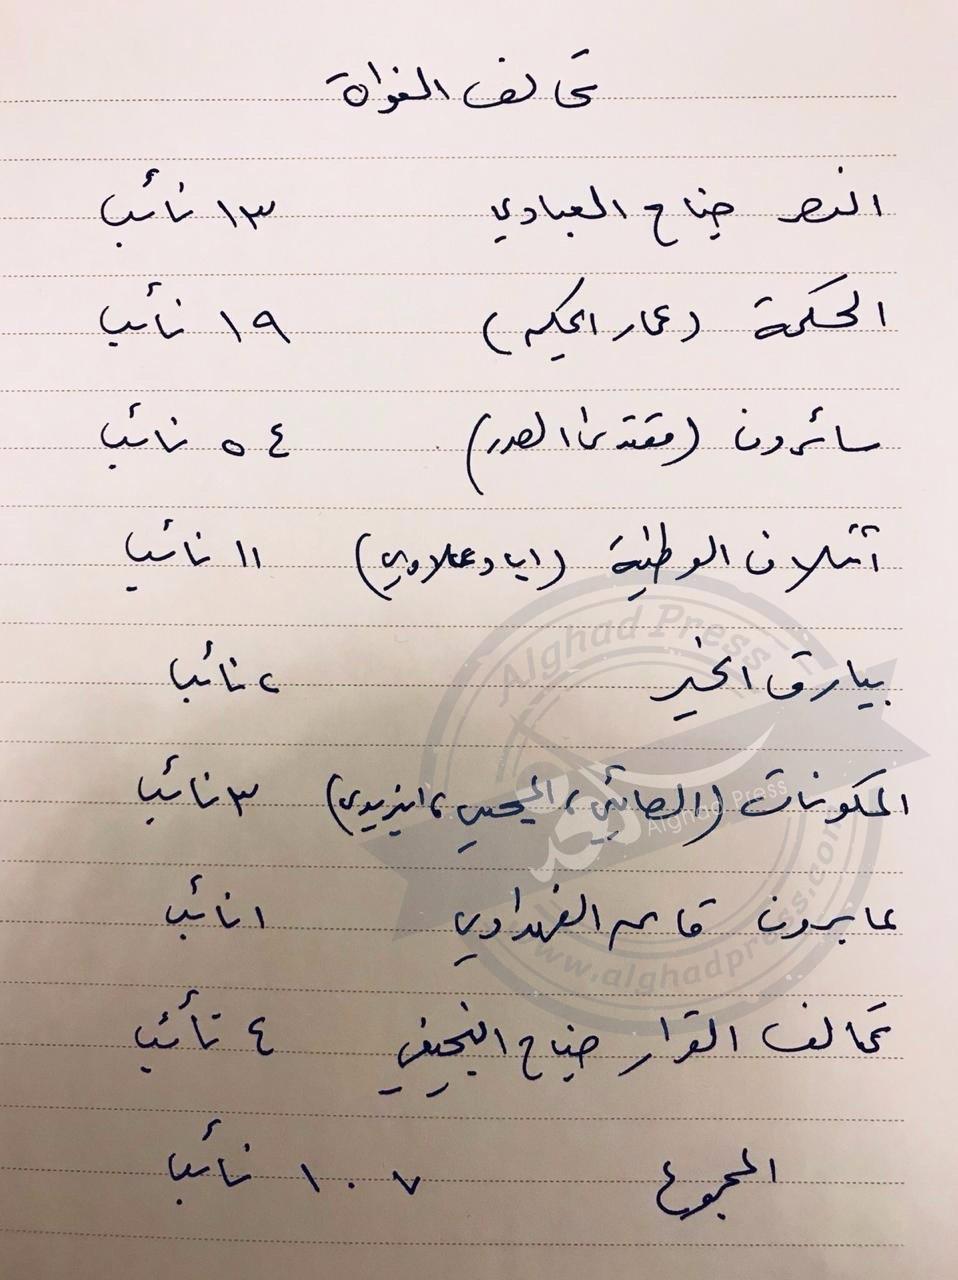 تحالف النواة
النصر جناح العبادي ١٣ نائب
الحكمة (عمار الحكيم) ١٩ نائب
سائرون (مقتدى الصدر) ٥٤ نائب
ائتلاف الوطنية (اياد علاوي) ١١ نائب
بيارق الخير ٢ نائب
المكونات (الصائبي، المسيحي، ايزيدي) ٣ نائب
عابرون قاسم الفهداوي ١ نائب
تحالف القرار جناح النجيفي ٤ نائب
المجموع ١٠٧ نائب
Alghad Press
الغد
Alghad Press
www.alghadpress.com